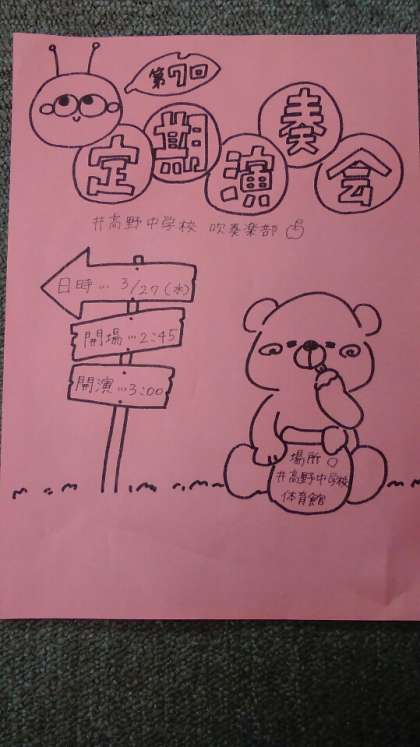 第7回
定期演奏会
井高野中学校 吹奏楽部
日時…3/27(水)
開場…2:45
開演…3:00
場所
井高野中学校
体育館